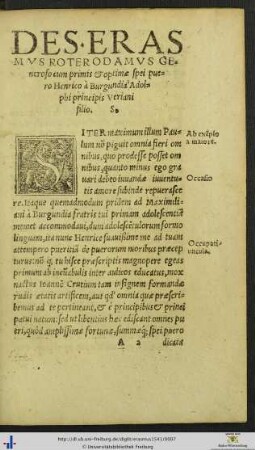 DES. ERAS
MVS ROTERODAMVS GE-
neroso cum primis & optimæ spei pue
ro Henrico à Burgundia Adol-
phi principis Veriani
filio. S.
SI TER maximum illum Pau
lum nõ piguit omnia fieri om
nibus, quo prodesse posset om
nibus, quanto minus ego gra
uari debeo iuuandæ iuuentu-
tis amore subinde repuerasce
re. Itaque quemadmodum pridem ad Maximili-
ani à Burgundia fratris tui primam adolescentiã
memet accommodaui, dum adolescẽtulorum formo
linguam, ita nunc Henrice suauissime me ad tuam
attempero pueritiã de puerorum moribus præcep
turus
primum ab incũabulis inter aulicos educatus, mox
nactus Ioannẽ Crucium tam insignem formandæ
rudis ætatis artificem, aut qđ omnia quæ præscri-
bimus ad te pertineant, & è principibus & princi
patui natum: sed ut libentius hæc ediscant omnes pu
eri, quòd amplissimæ fortunæ, summæq; spei puero
A 2 dicata
Ab exẽplo
à maiore.
Occasio
Occupati-
uncula.
© Universitätsbibliothek Freiburg